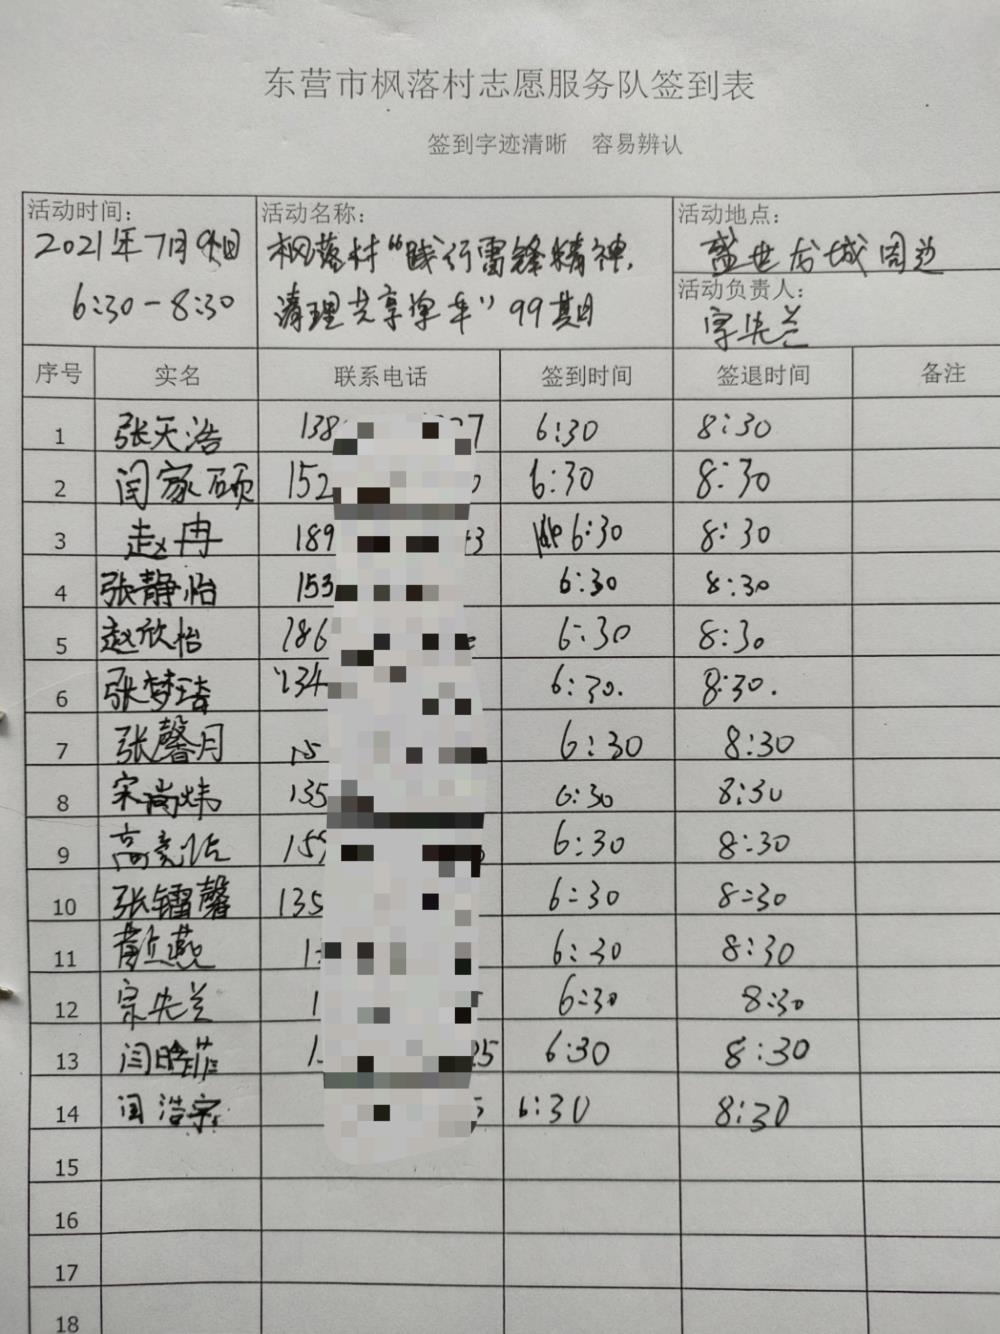 东营市枫落村志愿服务队签到表
签到字迹清晰 容易辨认
活动时间: 活动名称: 活动地点:
2021年7月 日 枫落村“践行雷锋精神, 盛世龙城周边
6:30-8:30 清理共享单车”99期 活动负责人:
宗先兰
序号 实名 联系电话 签到时间 签退时间 备注
1 张天浩 138 7 6:30 8:30
2 闫家硕 152 6:30 8:30
3 赵冉 189 3 6:30 8:30
4 张静怡 153 6:30 8:30
5 赵欣怡 186 6:30 8:30
6 张梦琦 134 6:30. 8:30.
7 张馨月 15 6:30 8:30
8 宋尚炜 135 6:30 8:30
9 高 15 6:30 8:30
10 张镭馨 135 6:30 8:30
11 燕 1 6:30 8:30
12 宗先兰 1 6:30 8:30
13 闫晗菲 1 25 6:30 8:30
14 闫浩宇 5 6:30 8:30
15
16
17
18